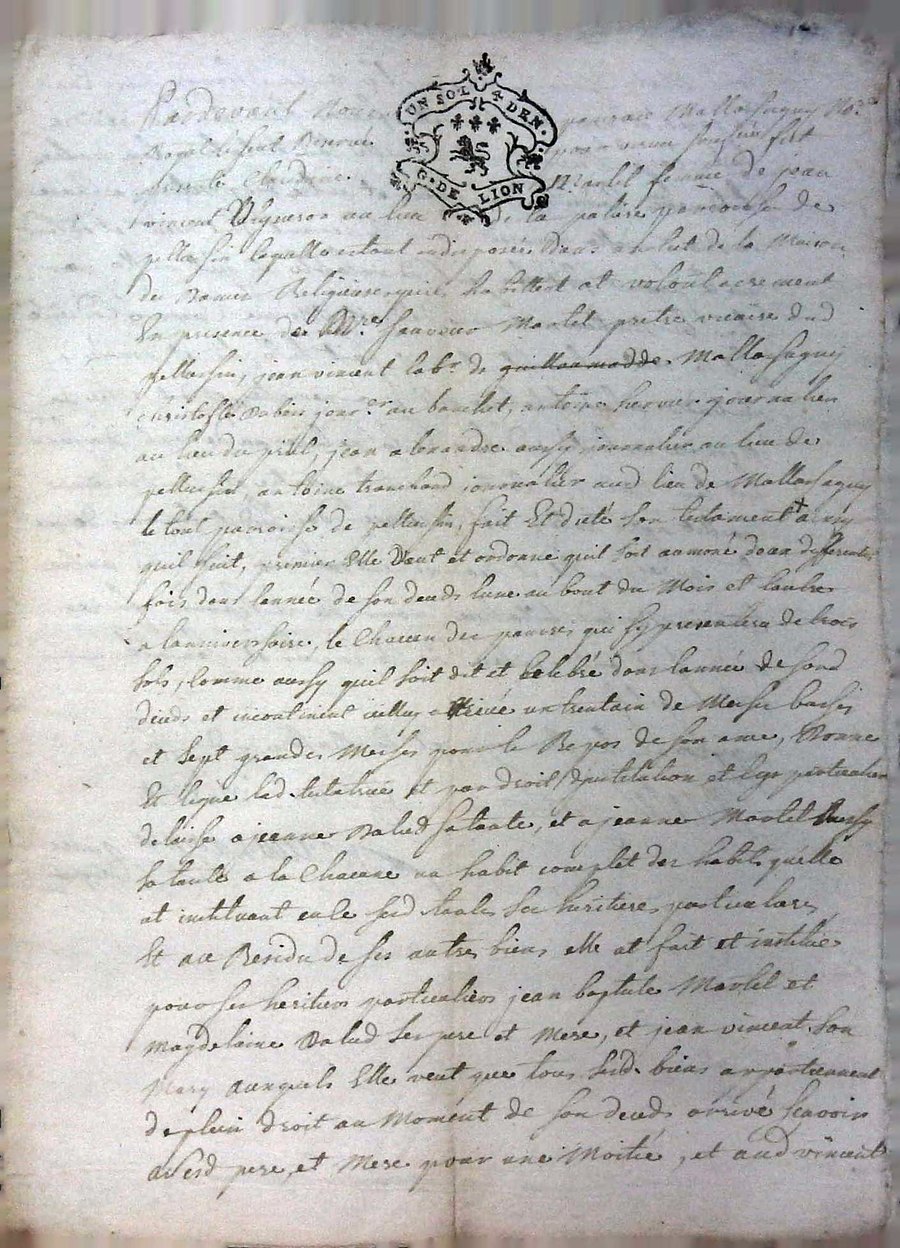 UN SOL 4 DEN.
G. DE LION
Pardevant Nous Mallassaguy No.re
Royal fut
presente Claudine Martel femme de jean
vincent Vigneron au lieu de la paroisse de
pellussin laquelle estant indisposée dans un lit de la Maison
de Dames Religieuses et volontairement
En presence de M.re Martel pretre vicaire dud
pellussin, jean vincent lab.r de guillaumadde Mallassaguy
cristofle jour.er au banchet, antoine journalier
au lieu du jean alexandre aussy journalier au lieu de
pellussin, antoine tranchand journalier aud lieu de Mallassaguy
le tout paroisse de pellussin, fait Et dicté son testament + ainsy
quil suit, premier Elle Veut et ordonne quil soit aumoné deux differentes
fois dans lannée de son deceds lune au bout du Mois et lautre
a lanniversaire, le Chacun des pauvres qui sy presentera de trois
sols, Comme aussy quil soit dit et Celebré dans lannée de sond
deceds et incontinent arrivé un trentain de Messes basses
et sept grandes Messes pour le Repos de son ame, Donne
Et legue lad. testatrice et par droit d'institution et legs particulier
delaisse a jeanne Balud sa tante, et a jeanne Martel aussy
sa tante a la Chacune un habit complet des habits qu'elle
at instituant en ce ses heritieres particulieres,
Et au Residu de ses autres biens elle at fait et institué
pour ses heritiers particuliers jean baptiste Martel et
Magdelaine Balud ses pere et Mere, et jean vincent son
Mary auxquels Elle veut que tous sesd. biens appartiennent
de plein droit au Moment de son deceds arrivé Scavoir
a sesd pere, et Mere pour une Moitié, et aud vincent